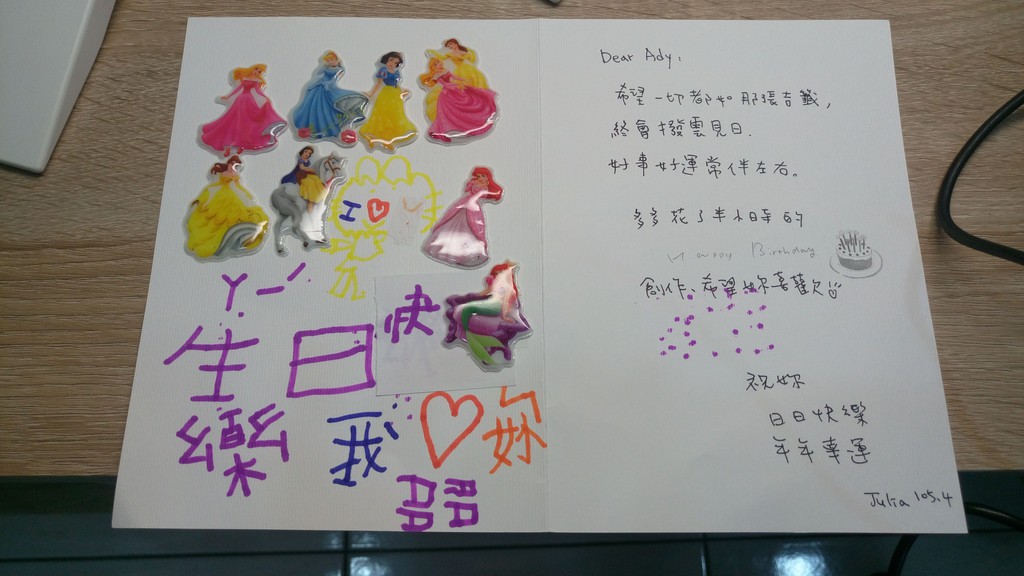 I ♡
ㄚ ㄧˊ
生日快
樂 我♡妳
Dear Ady:
希望一切都如那張吉籤,
終會撥雲見日.
好事好運常伴左右。
多多花了半小時的
Happy Birthday
創作、希望妳喜歡
祝妳
日日快樂
年年幸運
Julia 105.4